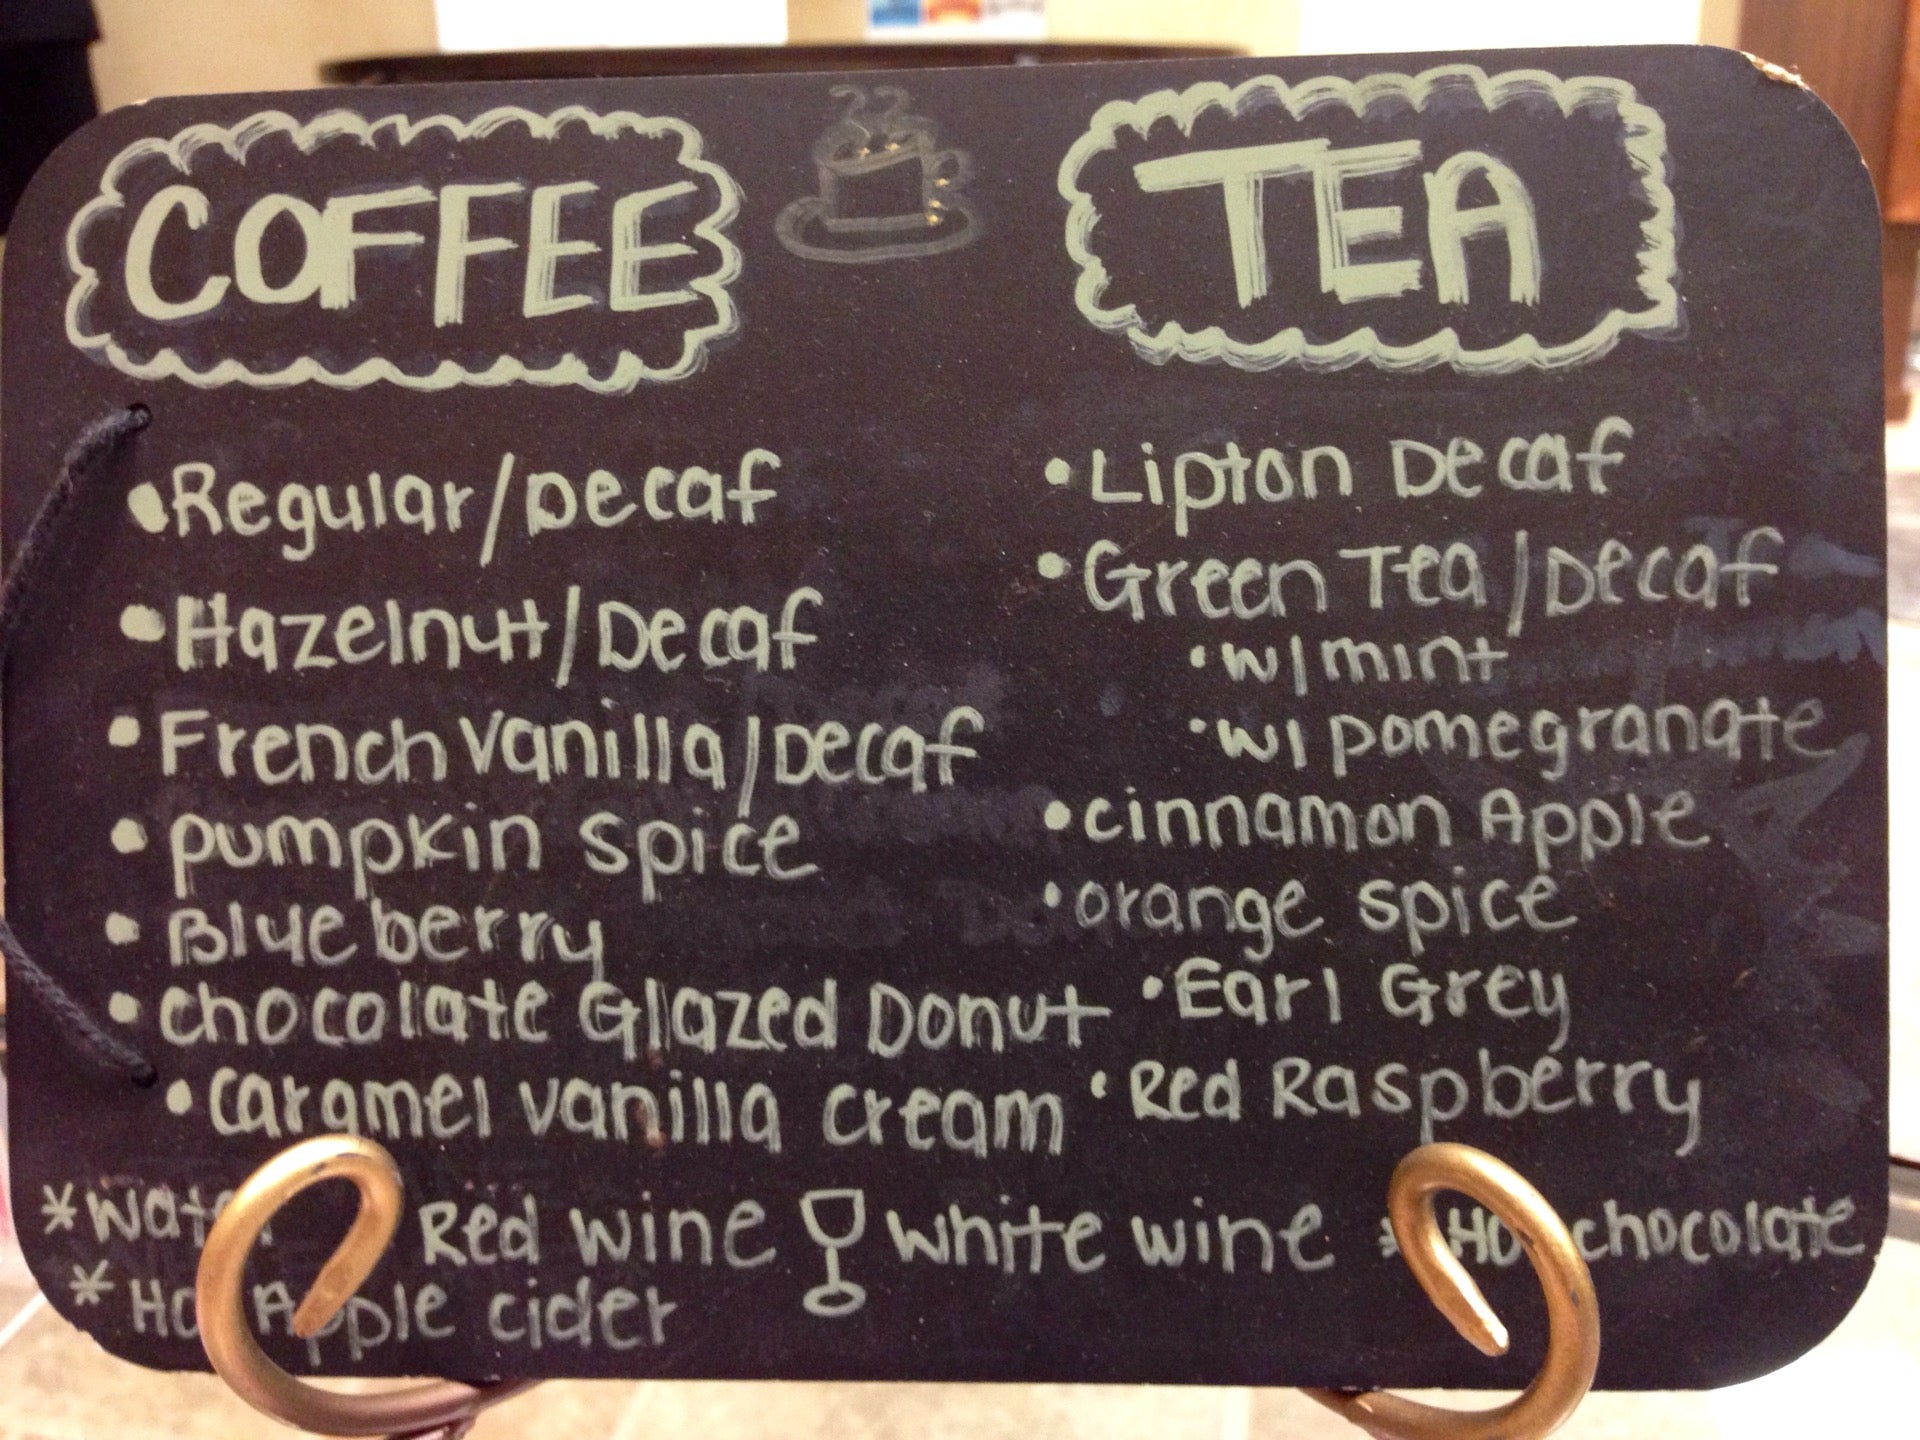 COFFEE
• Regular/Decaf
• Hazelnut/Decaf
• French Vanilla/Decaf
• Pumpkin Spice
• Blueberry
• Chocolate Glazed Donut
• Caramel Vanilla Cream
TEA
• Lipton Decaf
• Green Tea/Decaf
• w/mint
• w/pomegranate
• Cinnamon Apple
• Orange Spice
• Earl Grey
• Red Raspberry
* Water Red Wine White Wine * Hot Chocolate
* Hot Apple Cider